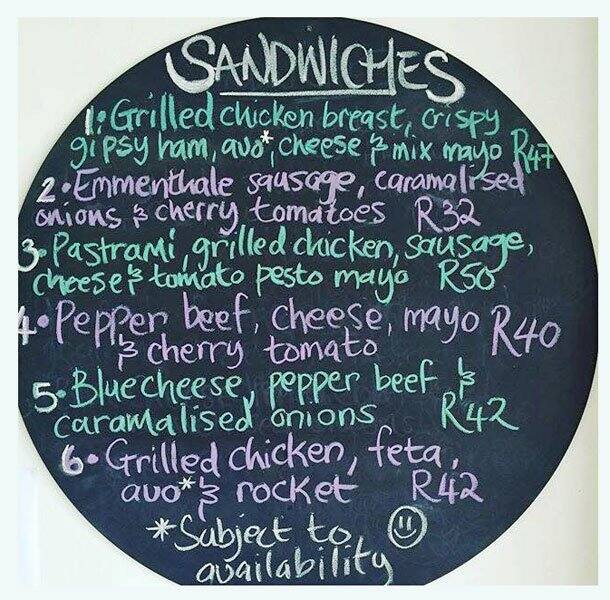 SANDWICHES
1. Grilled chicken breast, crispy
gipsy ham, avo*, cheese & mix mayo R47
2. Emmenthale sausage, caramalised
onions & cherry tomatoes R32
3. Pastrami, grilled chicken, sausage,
cheese & tomato pesto mayo R50
4. Pepper beef, cheese, mayo R40
& cherry tomato
5. Bluecheese, pepper beef &
caramalised onions R42
6. Grilled chicken, feta,
avo* & rocket R42
*Subject to
availability